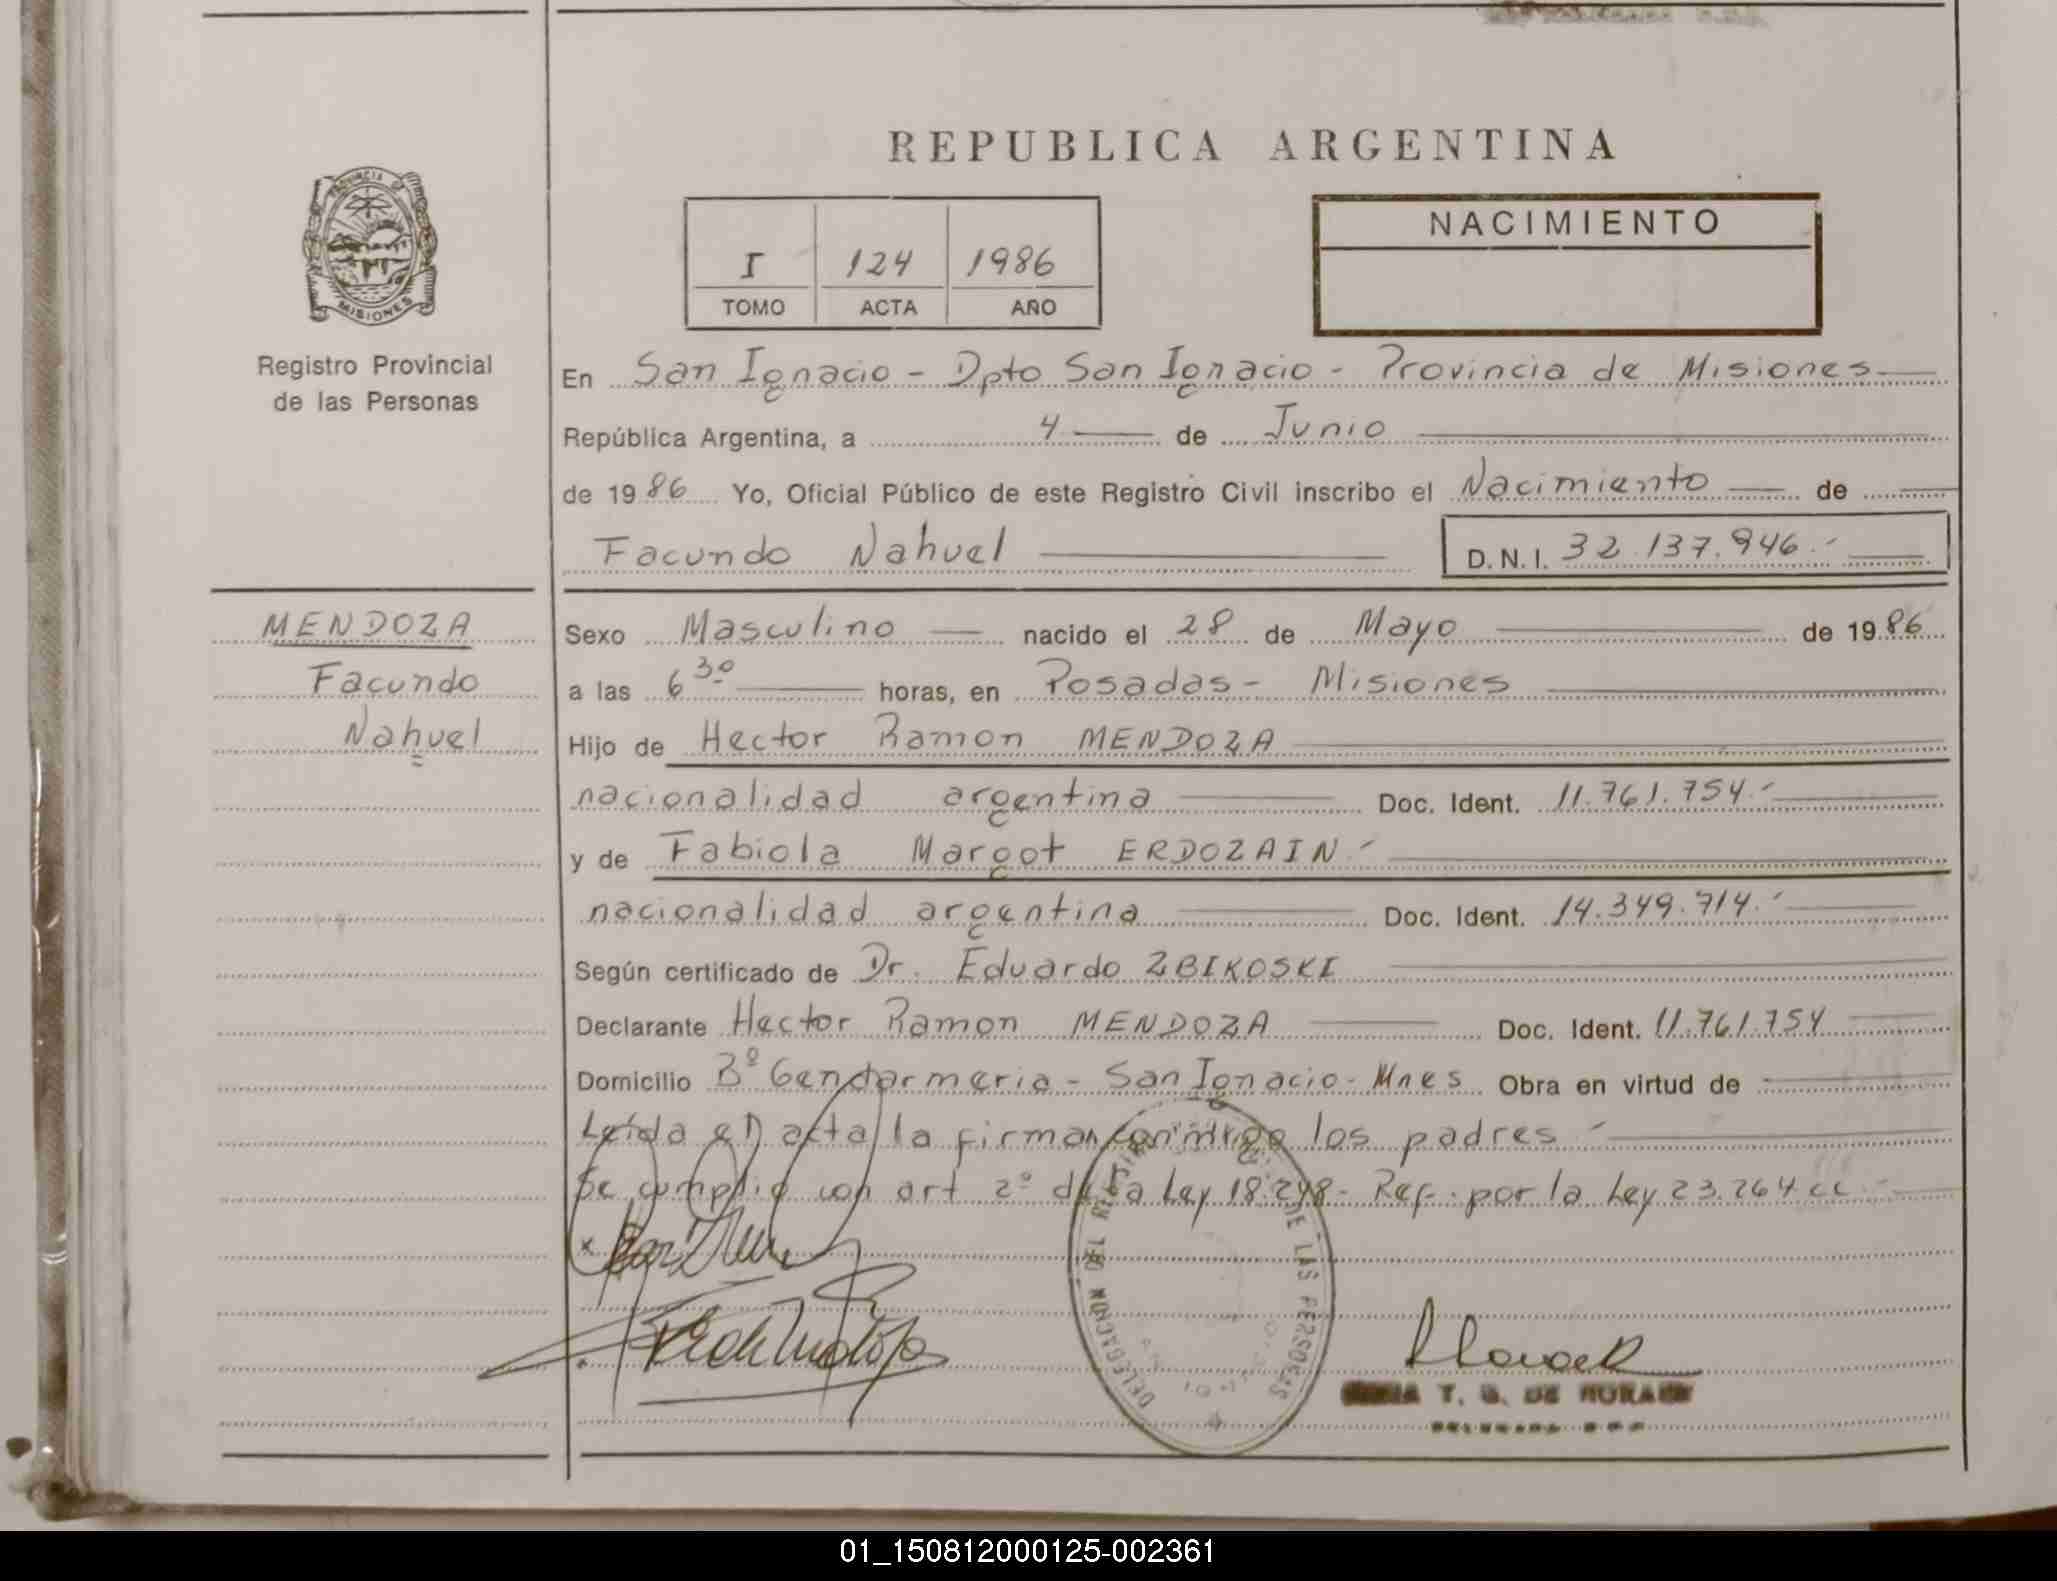 REPUBLICA ARGENTINA
PROVINCIA DE
MISIONES
Registro Provincial
de las Personas
I 124 1986
TOMO ACTA AÑO
NACIMIENTO
En San Ignacio - Dpto San Ignacio - Provincia de Misiones
República Argentina, a 4 de Junio
de 1986 Yo, Oficial Público de este Registro Civil inscribo el Nacimiento de
Facundo Nahuel D.N.I. 32.137.946.-
MENDOZA
Facundo
Nahuel
Sexo Masculino nacido el 28 de Mayo de 1986
a las 6 30 horas, en Posadas - Misiones
Hijo de Hector Ramon MENDOZA
nacionalidad argentina Doc. Ident. 11.761.754.-
y de Fabiola Margot ERDOZAIN.-
nacionalidad argentina Doc. Ident. 14.349.714.-
Según certificado de Dr. Eduardo ZBIKOSKI
Declarante Hector Ramon MENDOZA Doc. Ident. 11.761.754
Domicilio Bº Gendarmeria - San Ignacio - Mnes Obra en virtud de
Leida el acta la firman conmigo los padres.-
Se cumplio con art 2º de la Ley 18.248 - Ref. por la Ley 23.264
DELEGACION DEL REGISTRO DE LAS PERSONAS
T. G. DE
01_150812000125-002361